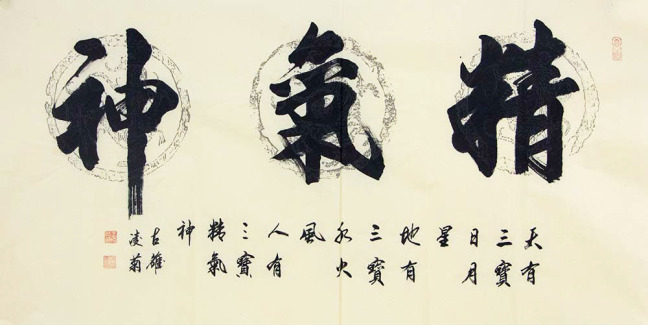 精氣神
天有
三寶
日月
星
地有
三寶
水火
風
人有
三寶
精氣
神
古雄
凌菊